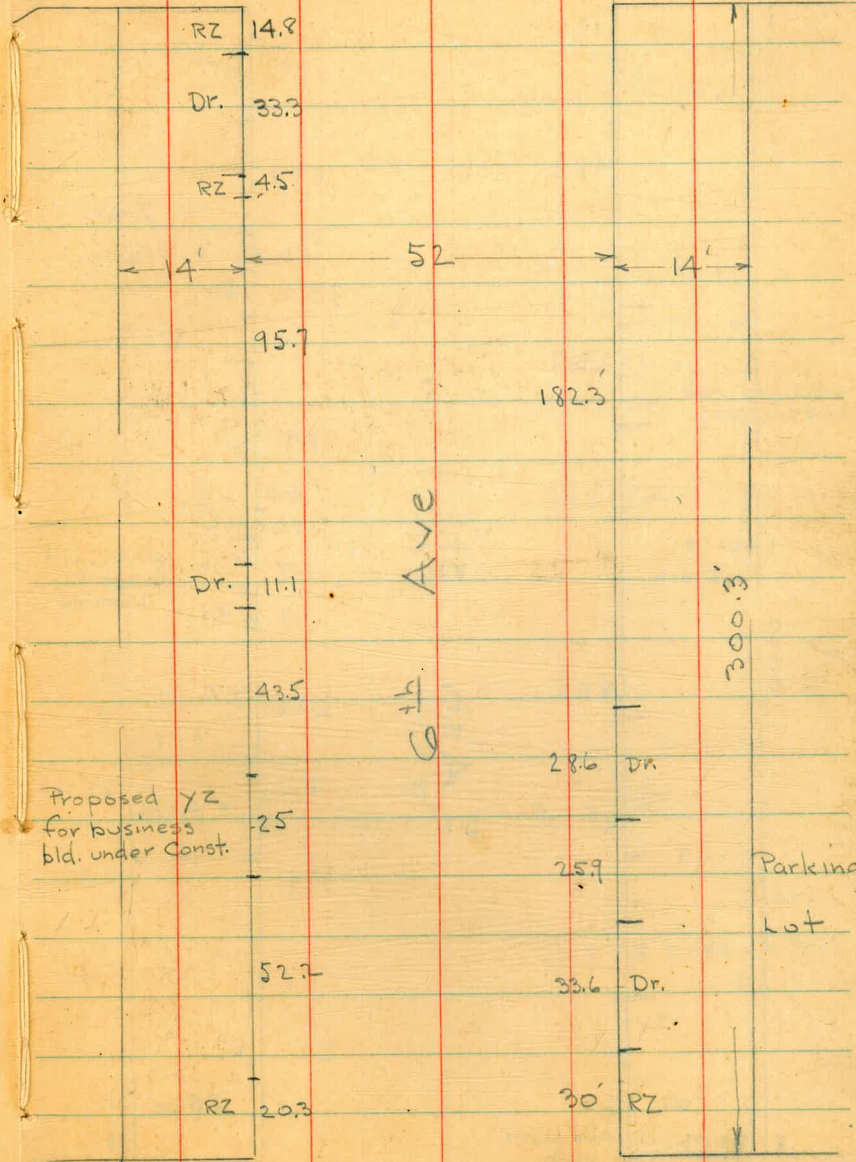 RZ 14.8
Dr. 33.3
RZ 4.5
14' 52 14'
95.7
182.3'
6th Ave
Dr. 11.1
300.3'
43.5
28.6 Dr.
Proposed YZ
for business
bld. under Const.
25
25.9
Parking
Lot
52.2
33.6 Dr.
RZ 20.3
30' RZ